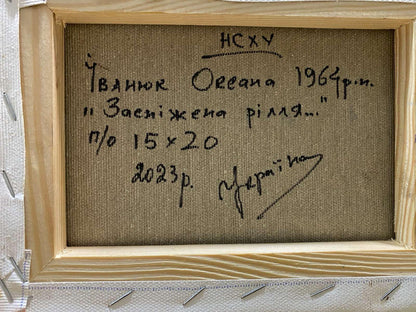 НСХУ
Іванюк Оксана 1964р.н.
"Засніжена рілля..."
п/о 15х20
2023р. Україна